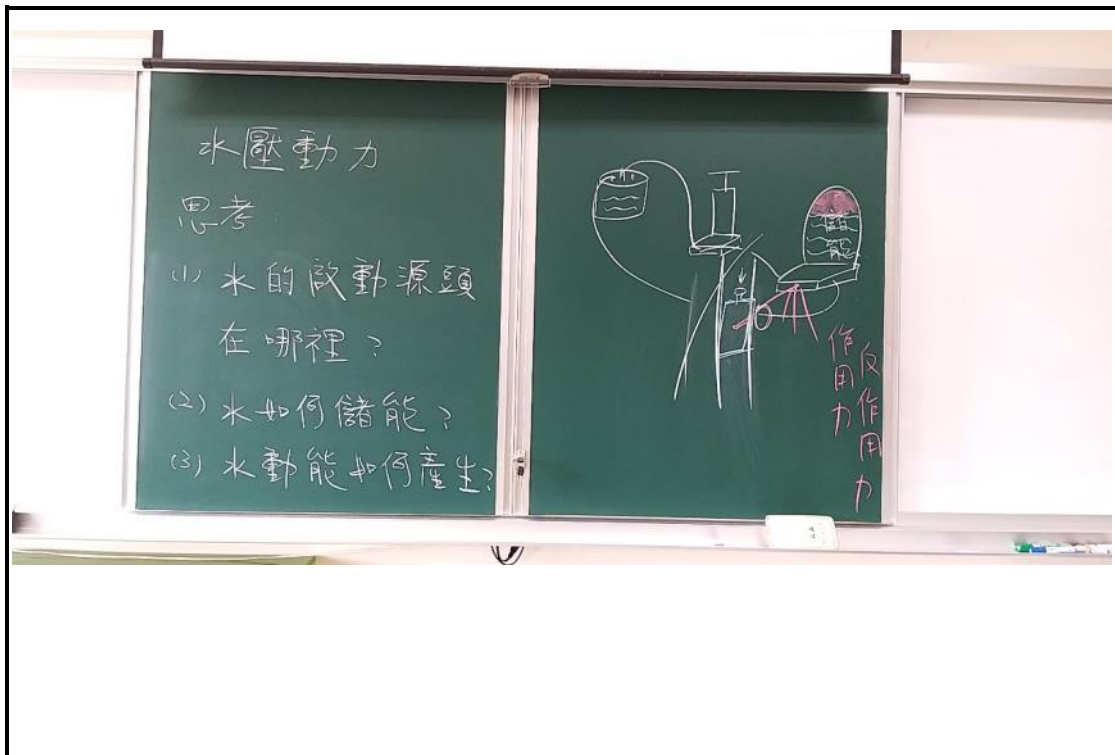 水壓動力
思考:
(1) 水的啟動源頭
在哪裡?
(2) 水如何儲能?
(3) 水動能如何產生?
儲
能
作用力
反作用力